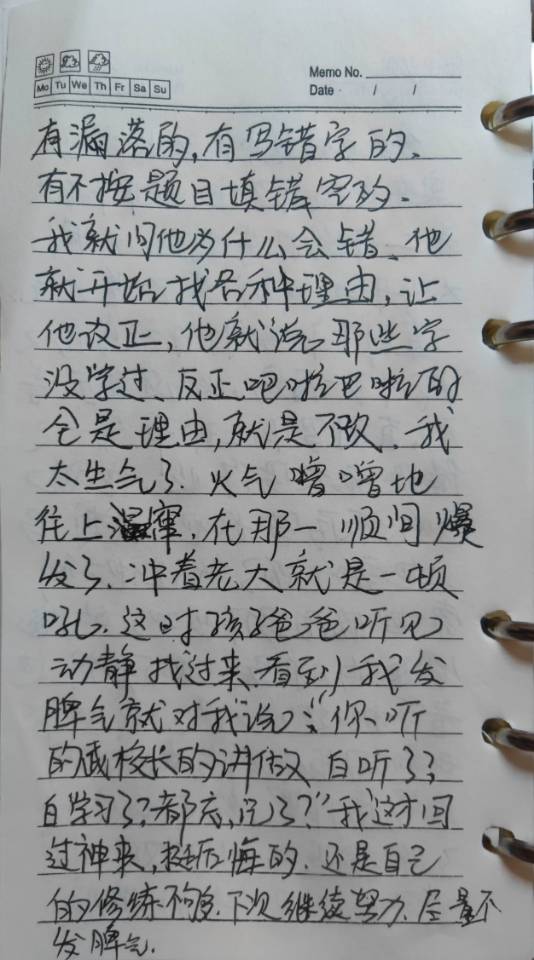 Memo No.
Mo Tu We Th Fr Sa Su
Date / /
有漏落的,有写错字的、
有不按题目填错空的.
我就问他为什么会错、他
就开始找各种理由,让
他改正,他就说那些字
没学过、反正吧啦吧啦的
全是理由,就是不改.我
太生气了.火气噌噌地
往上窜.在那一顺间爆
发了.冲着老大就是一顿
吼.这时孩子爸爸听见
动静找过来.看到我发
脾气就对我说:“你听
的戚校长的讲做白听了?
白学习了?都忘完了?”我这才回
过神来,挺后悔的.还是自己
的修练不够.下次继续努力.尽量不
发脾气.